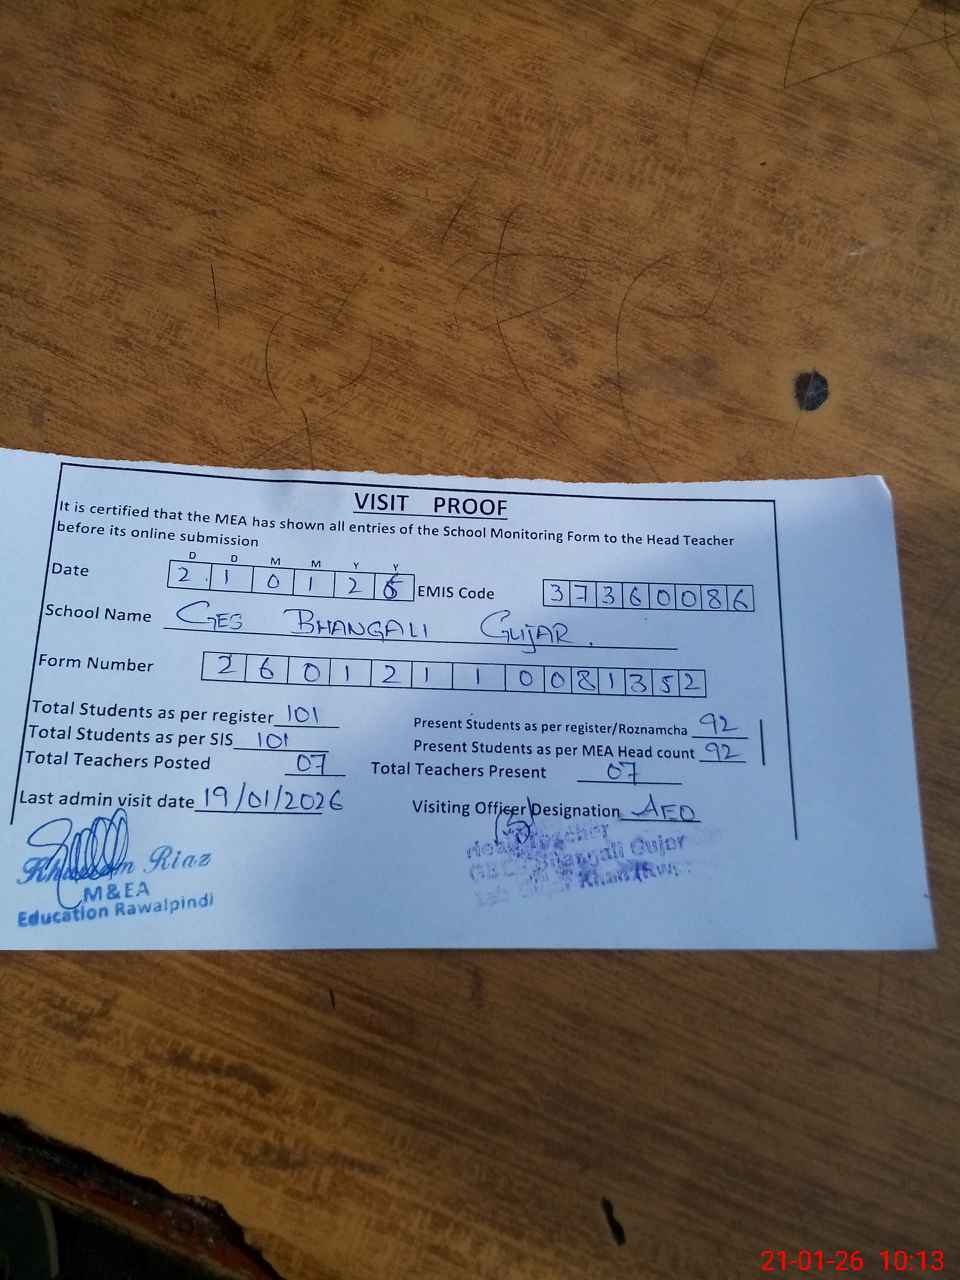 VISIT PROOF
It is certified that the MEA has shown all entries of the School Monitoring Form to the Head Teacher
before its online submission
D D M M Y Y
Date 2 1 0 1 2 6 EMIS Code 3 7 3 6 0 0 8 6
School Name GES BHANGALI GUJAR.
Form Number 2 6 0 1 2 1 1 0 0 8 1 3 5 2
Total Students as per register 101 Present Students as per register/Roznamcha 92
Total Students as per SIS 101 Present Students as per MEA Head count 92
Total Teachers Posted 07 Total Teachers Present 07
Last admin visit date 19/01/2026 Visiting Officer Designation AEO
Riaz
M&EA
Education Rawalpindi
Bhangali Gujar
Khan
21-01-26 10:13